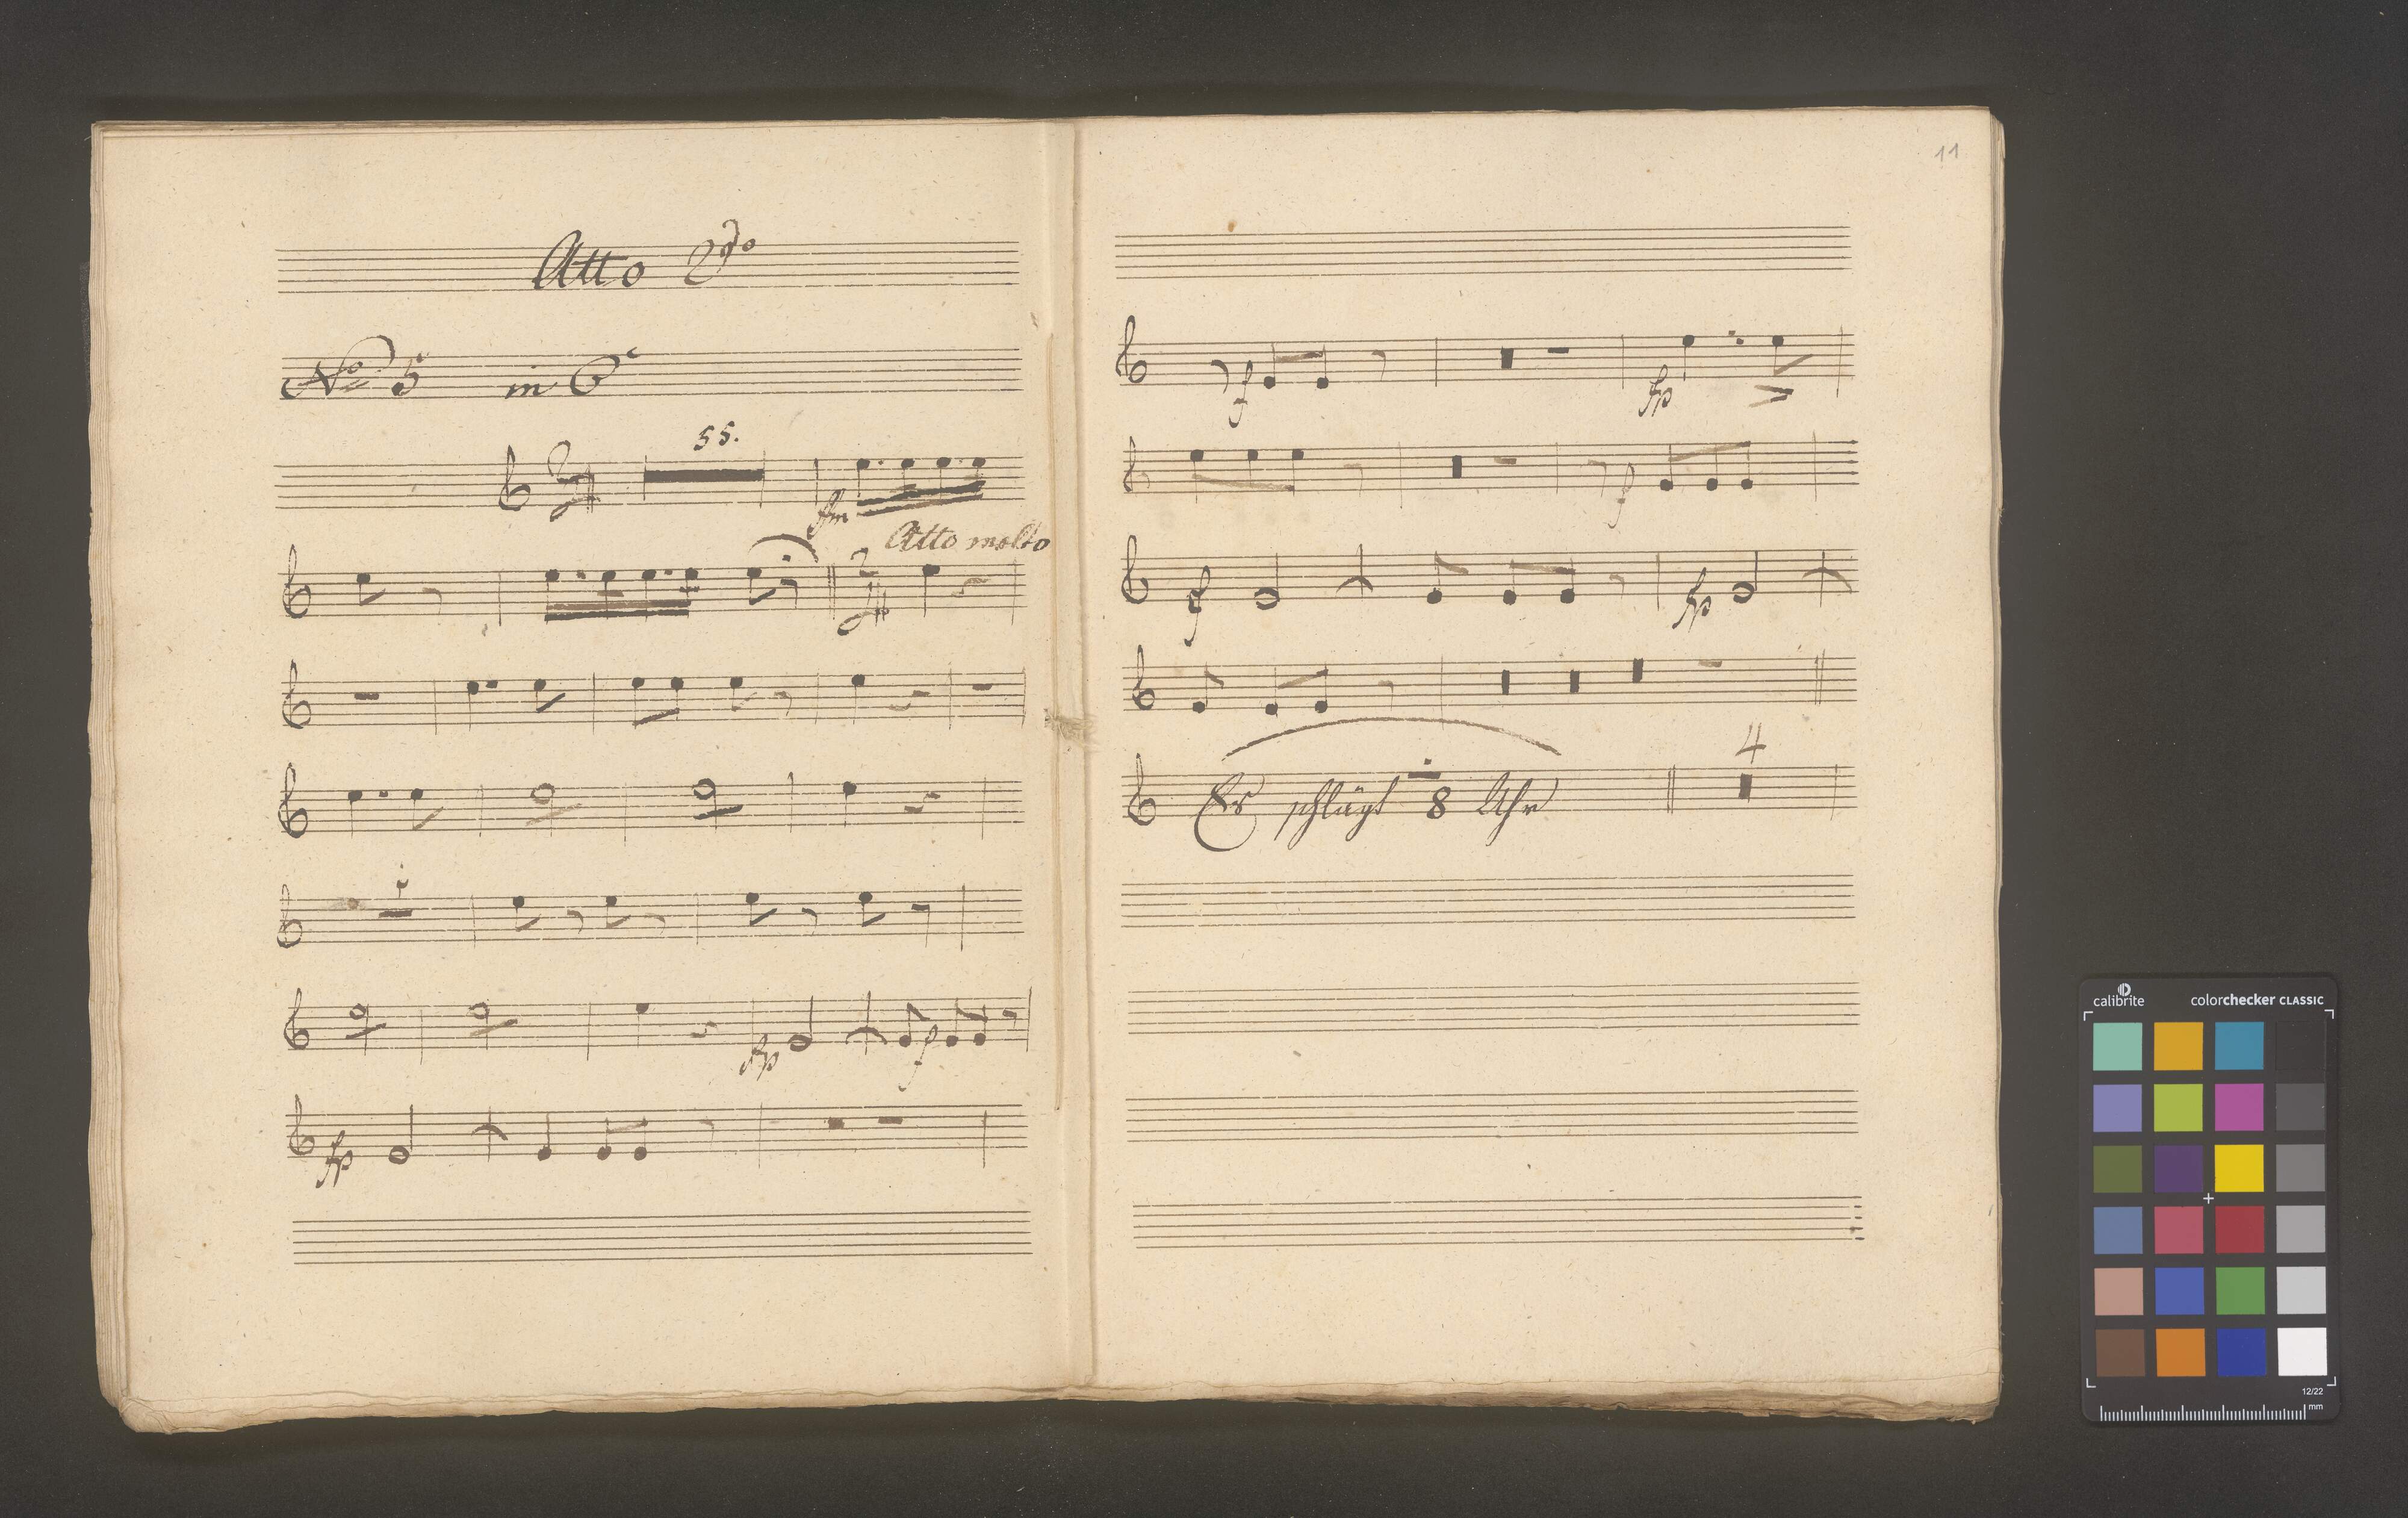 Atto 2do
No 5 in C
55.
ffm
Allo molto
fp f
fp
11
f fp
f
f fp
4
Es schlägt 8 Uhr
calibrite colorchecker CLASSIC
12/22
mm